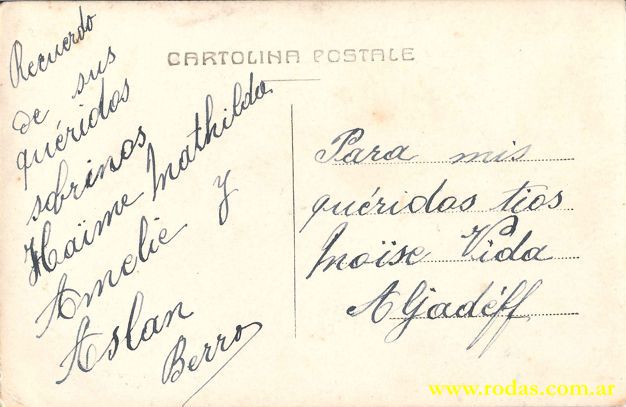 CARTOLINA POSTALE
Recuerdo
de sus
quéridos
sobrinos
Haïme Mathilda
Amelie y
Aslan
Berro
Para mis
quéridos tios
Moïse Vida
Aljadéff
www.rodas.com.ar